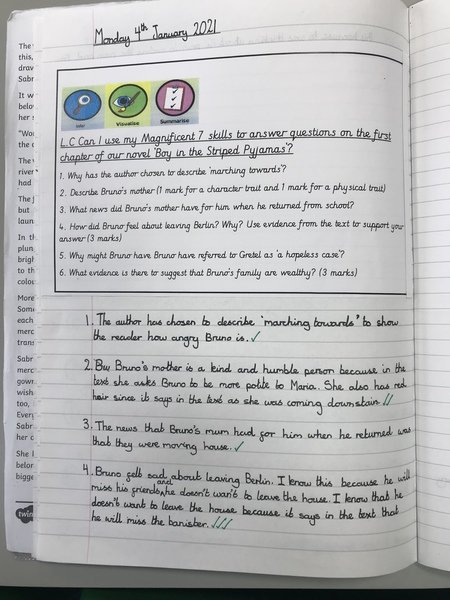 Monday 4th January 2021
Infer
Visualise
Summarise
L.C Can I use my Magnificent 7 skills to answer questions on the first
chapter of our novel 'Boy in the Striped Pyjamas'?
1. Why has the author chosen to describe 'marching towards'?
2. Describe Bruno's mother (1 mark for a character trait and 1 mark for a physical trait)
3. What news did Bruno's mother have for him when he returned from school?
4. How did Bruno feel about leaving Berlin? Why? Use evidence from the text to support your
answer (3 marks)
5. Why might Bruno have Bruno have referred to Gretel as 'a hopeless case'?
6. What evidence is there to suggest that Bruno's family are wealthy? (3 marks)
1. The author has chosen to describe 'marching towards" to show
the reader how angry Bruno is. ✓
2. Bruno's mother is a kind and humble person because in the
text she asks Bruno to be more polite to Maria. She also has red
hair since it says in the text as she was coming downstair. ✓✓
3. The news that Bruno's mum had for him when he returned was
that they were moving house. ✓
4. Bruno felt sad about leaving Berlin. I know this because he will
miss his friends and he doesn't wan't to leave the house. I know that he
doesn't want to leave the house because it says in the text that
he will miss the banister. ✓✓✓